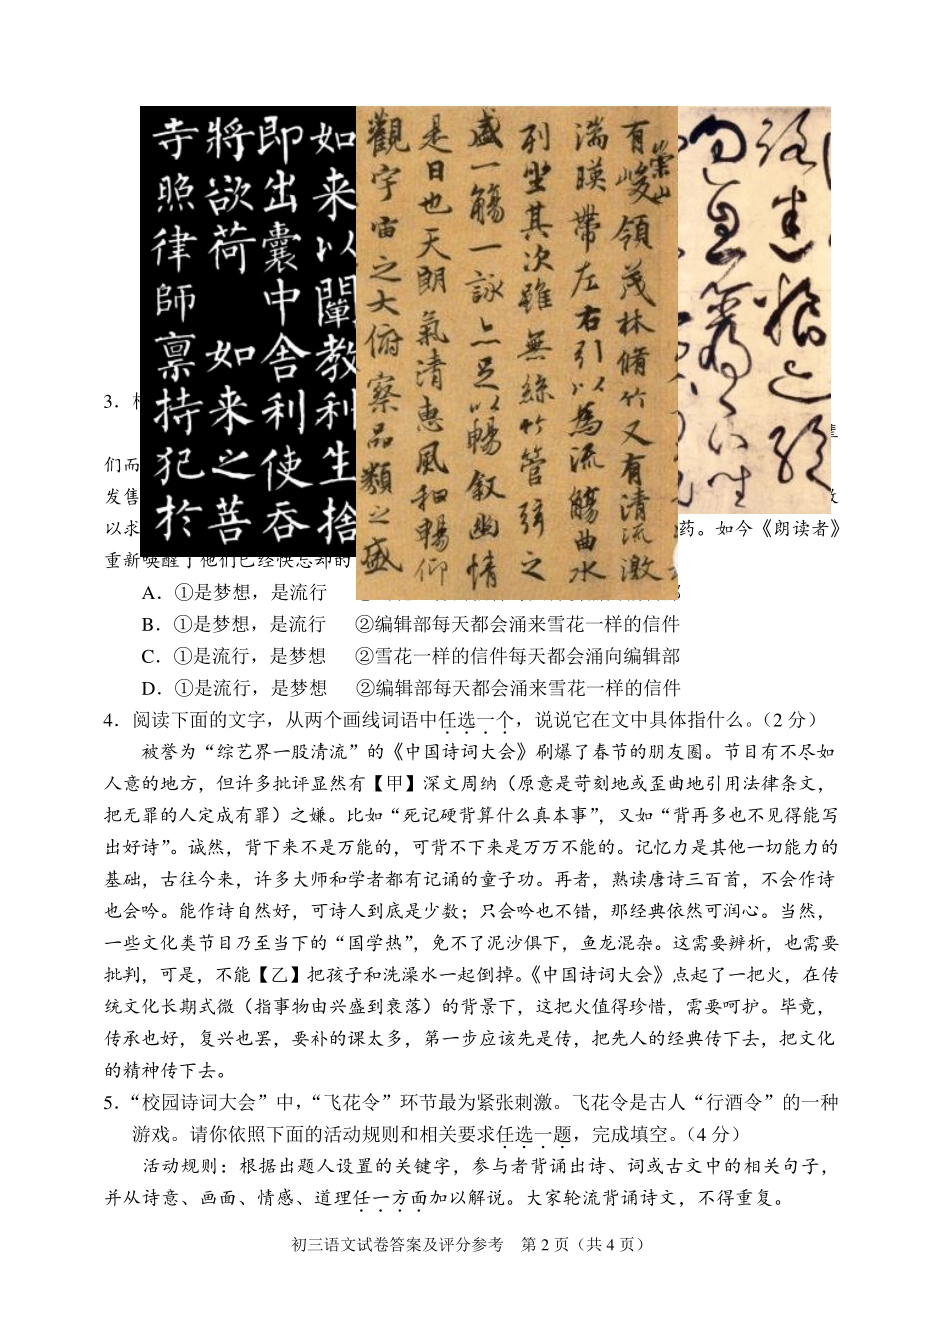 如来以闡教利生捨
即出囊中舍利使吞
將欲荷 如来之菩
寺照律師禀持犯於
有崇山峻領茂林脩竹又有清流激
湍暎帶左右引以為流觴曲水
列坐其次雖無絲竹管弦之
盛一觴一詠亦足以暢叙幽情
是日也天朗氣清惠風和暢仰
觀宇宙之大俯察品類之盛
3．
们而
发售
以求 药。如今《朗读者》
重新唤醒了他们已经快忘却的
A．①是梦想，是流行
B．①是梦想，是流行 ②编辑部每天都会涌来雪花一样的信件
C．①是流行，是梦想 ②雪花一样的信件每天都会涌向编辑部
D．①是流行，是梦想 ②编辑部每天都会涌来雪花一样的信件
4．阅读下面的文字，从两个画线词语中任选一个，说说它在文中具体指什么。（2 分）
被誉为“综艺界一股清流”的《中国诗词大会》刷爆了春节的朋友圈。节目有不尽如
人意的地方，但许多批评显然有【甲】深文周纳（原意是苛刻地或歪曲地引用法律条文，
把无罪的人定成有罪）之嫌。比如“死记硬背算什么真本事”，又如“背再多也不见得能写
出好诗”。诚然，背下来不是万能的，可背不下来是万万不能的。记忆力是其他一切能力的
基础，古往今来，许多大师和学者都有记诵的童子功。再者，熟读唐诗三百首，不会作诗
也会吟。能作诗自然好，可诗人到底是少数；只会吟也不错，那经典依然可润心。当然，
一些文化类节目乃至当下的“国学热”，免不了泥沙俱下，鱼龙混杂。这需要辨析，也需要
批判，可是，不能【乙】把孩子和洗澡水一起倒掉。《中国诗词大会》点起了一把火，在传
统文化长期式微（指事物由兴盛到衰落）的背景下，这把火值得珍惜，需要呵护。毕竟，
传承也好，复兴也罢，要补的课太多，第一步应该先是传，把先人的经典传下去，把文化
的精神传下去。
5．“校园诗词大会”中，“飞花令”环节最为紧张刺激。飞花令是古人“行酒令”的一种
游戏。请你依照下面的活动规则和相关要求任选一题，完成填空。（4 分）
活动规则：根据出题人设置的关键字，参与者背诵出诗、词或古文中的相关句子，
并从诗意、画面、情感、道理任一方面加以解说。大家轮流背诵诗文，不得重复。
初三语文试卷答案及评分参考 第 2 页（共 4 页）